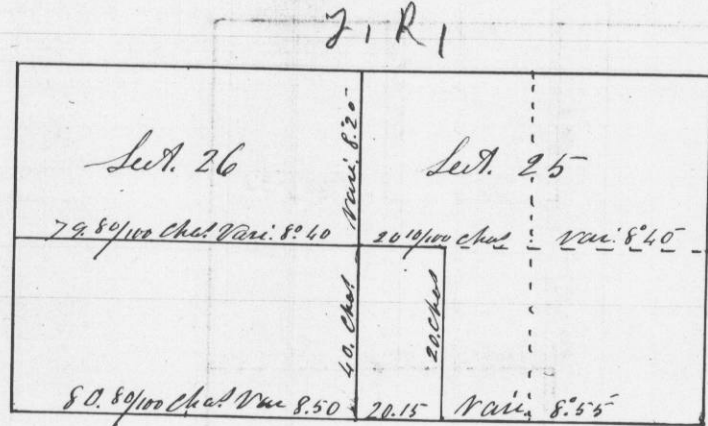 T 1 R 1
Sect. 26
Sect. 25
Vari. 8.20
79.80/100 Chs. Vari. 8°.40
20 10/100 Chs Vari. 8°45
40. Chs
20. Chs
80. 80/100 Chs. Var 8.50
20.15
Vari. 8°.55